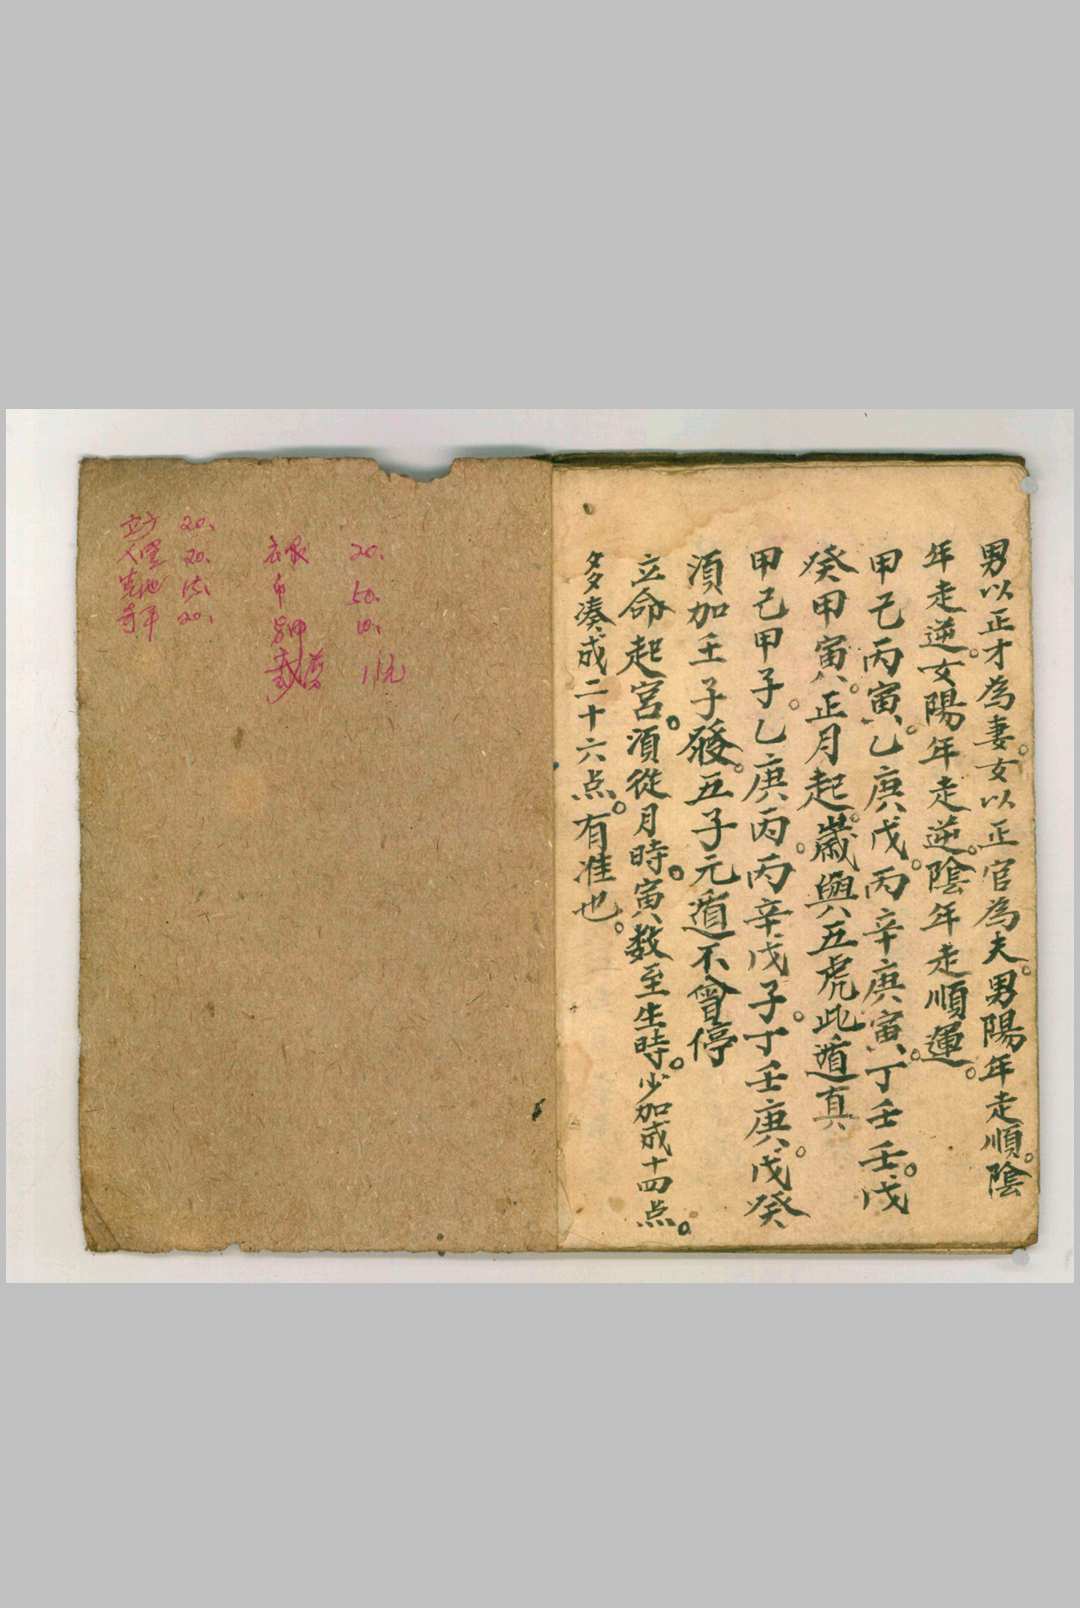 男以正才為妻。女以正官為夫。男陽年走順。陰
年走逆。女陽年走逆。陰年走順運。
甲己丙寅。乙庚戊。丙辛庚寅。丁壬壬。戊
癸甲寅。正月起。歲與五虎此遁真
甲己甲子。乙庚丙。丙辛戊子。丁壬庚。戊癸
須加壬子發。五子元遁不曾停
立命起宮。須從月時。寅数至生時。少加成十四点。
多凑成二十六点。有准也。
20.
20.
20.
20.
50.
10.